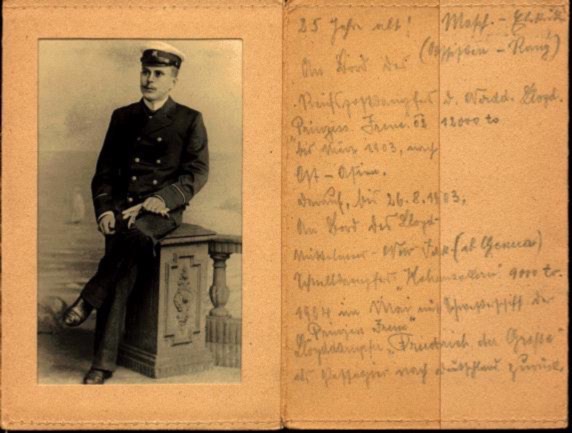 25 Jahre alt! Masch. - Elektrik
(Offizier - Rang)
An Bord des
Reichspostdampfers d. Nordd. Lloyd.
"Prinzess Irene" 12000 to
bis März 1903, nach
Ost - Asien.
Darauf, bis 26.8.1903,
An Bord des Lloyd
Mittelmeer - New York (ab Genua)
Schnelldampfers "Hohenzollern" 9000 to.
1904 im Mai mit Schwesterschiff der
"Prinzess Irene"
Lloyddampfer "Friedrich der Große"
als Passagier nach Deutschland zurück.